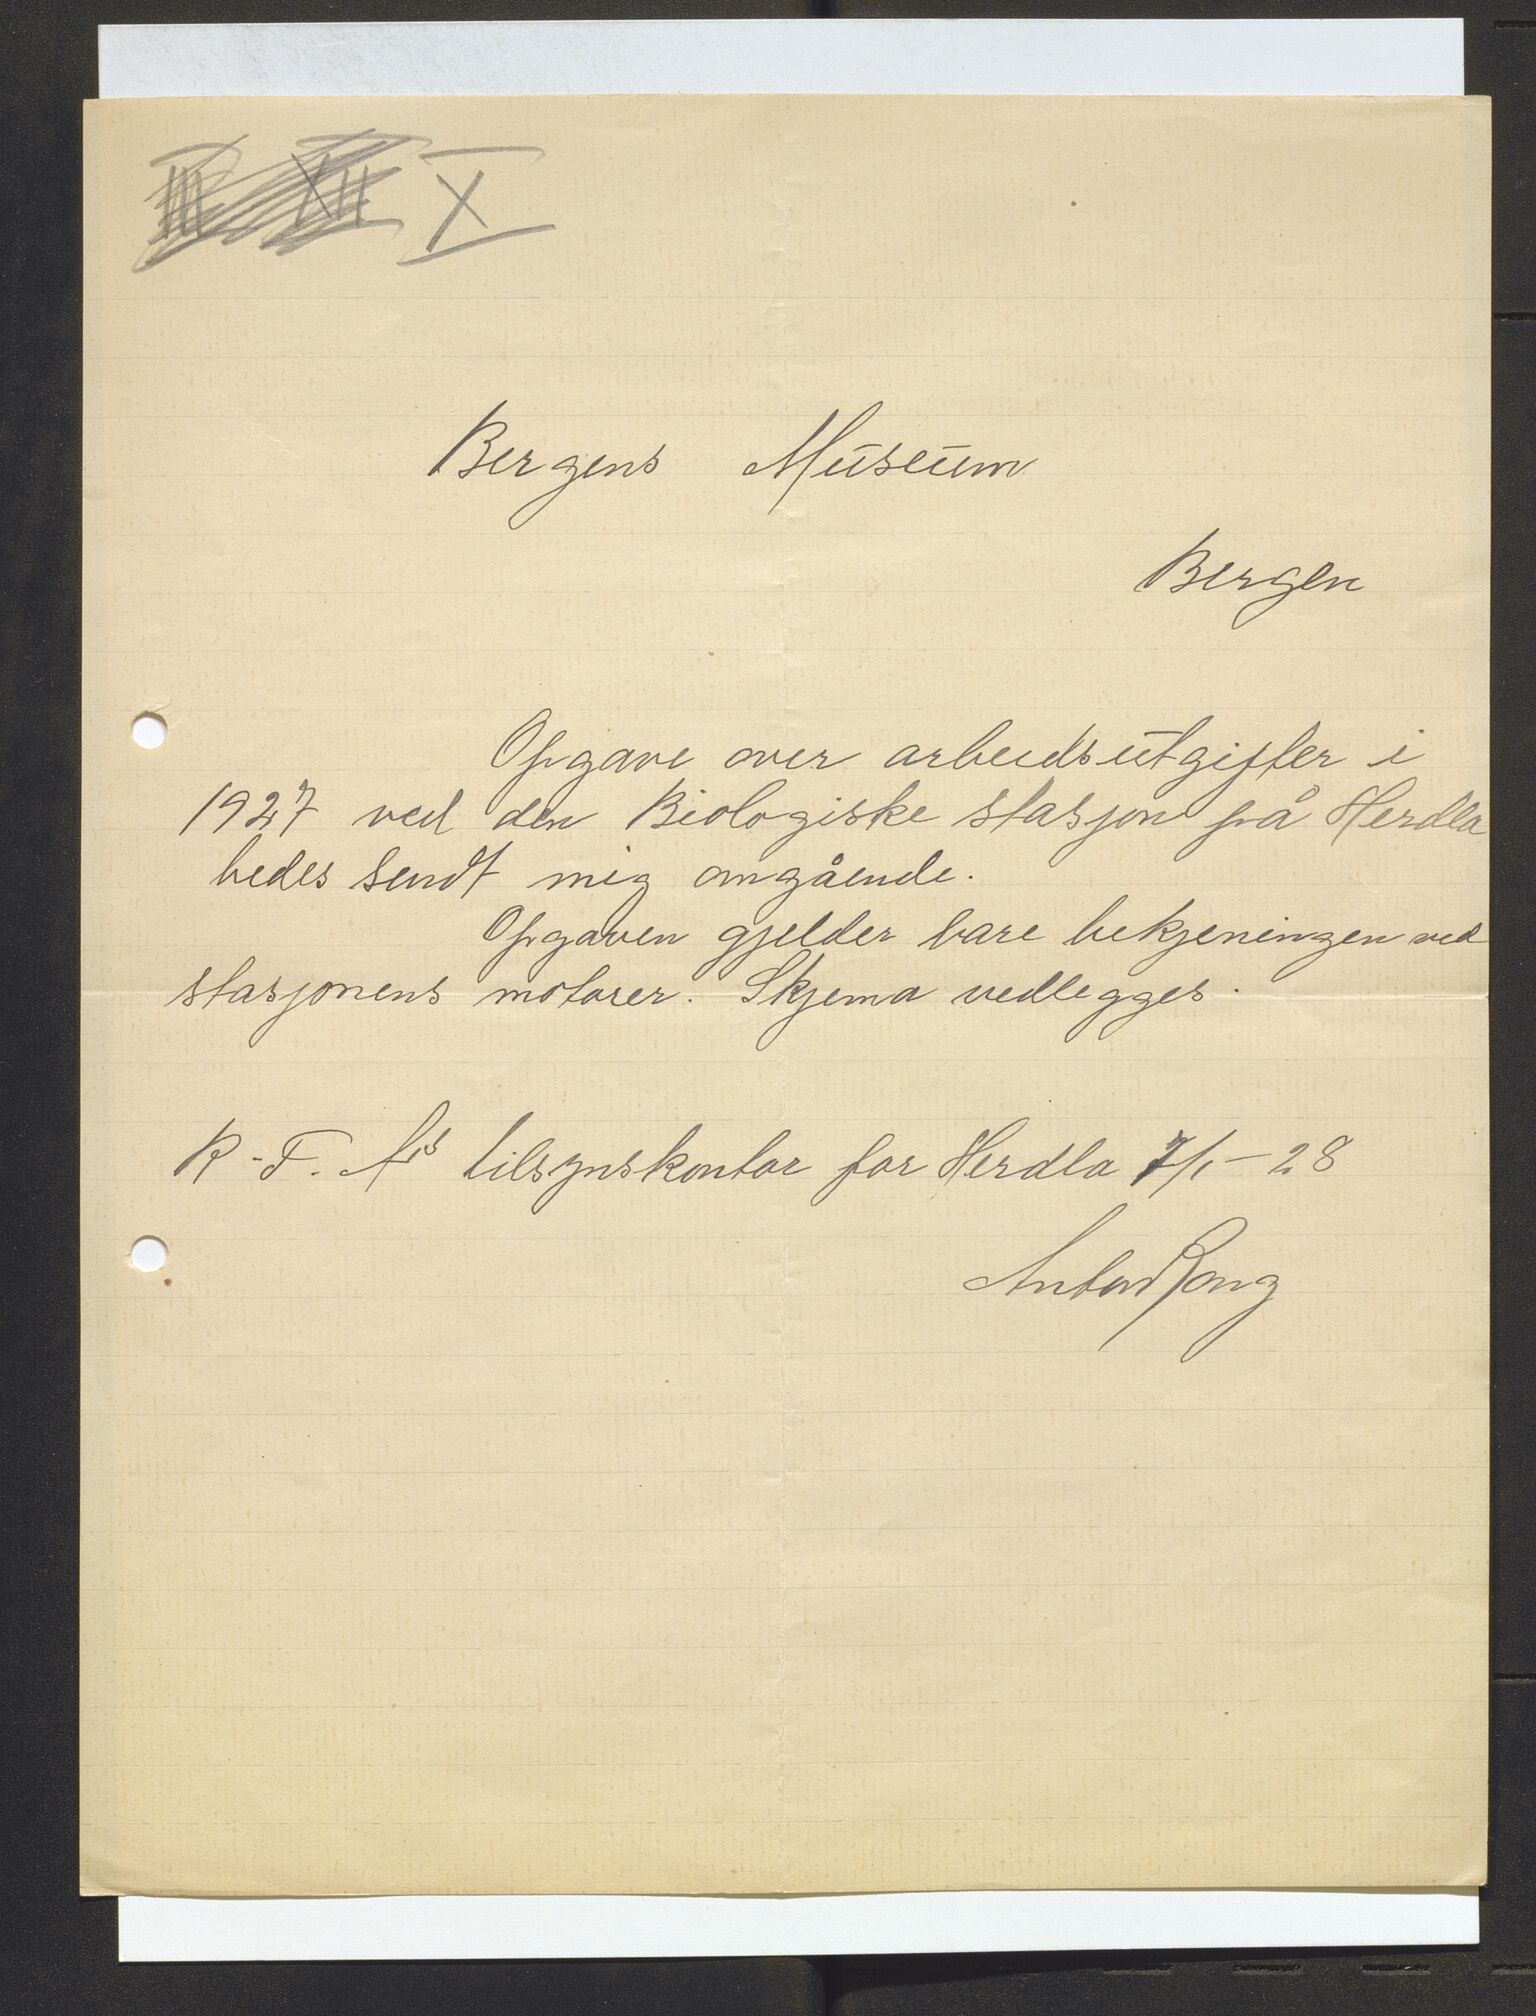 X
Bergens Museum
Bergen
Opgave over arbeidsutgifter i
1927 ved den Biologiske stasjon på Herdla
bedes sendt mig omgående.
Opgaven gjelder bare betjeningen ved
stasjonens motorer. Skjema vedlegges.
R.F.A's tilsynskontor for Herdla 7/1-28
Anton Rong